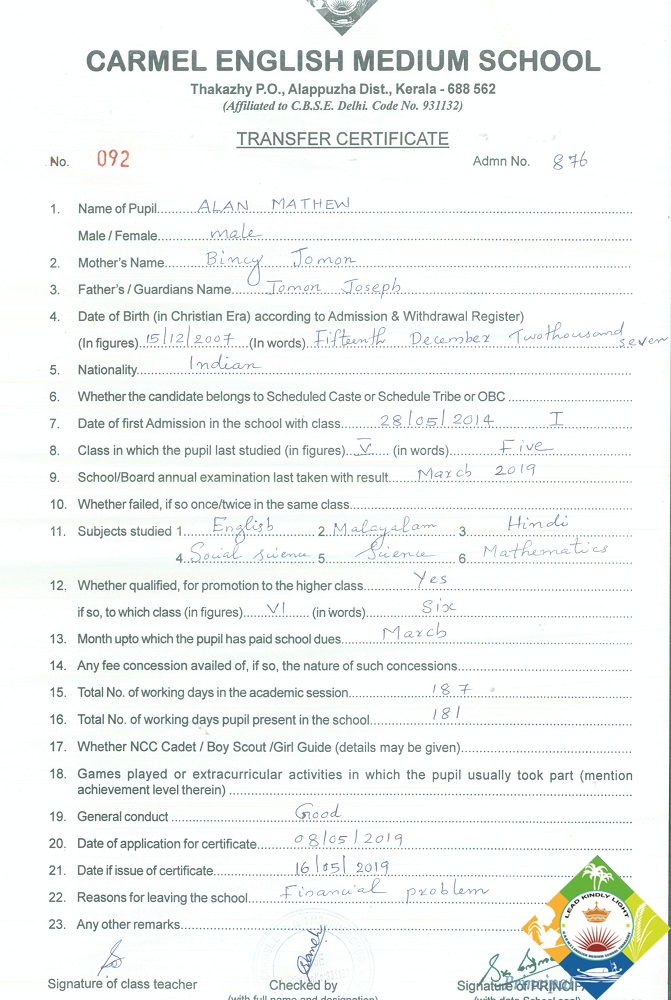 CARMEL ENGLISH MEDIUM SCHOOL
Thakazhy P.O., Alappuzha Dist., Kerala - 688 562
(Affiliated to C.B.S.E. Delhi. Code No. 931132)
TRANSFER CERTIFICATE
No. 092 Admn No. 876
1. Name of Pupil ALAN MATHEW
Male / Female male
2. Mother's Name Bincy Jomon
3. Father's / Guardians Name Jomon Joseph
4. Date of Birth (in Christian Era) according to Admission & Withdrawal Register)
(In figures) 15/12/2007 (In words) Fifteenth December Twothousand seven
5. Nationality Indian
6. Whether the candidate belongs to Scheduled Caste or Schedule Tribe or OBC
7. Date of first Admission in the school with class 28/05/2014 I
8. Class in which the pupil last studied (in figures) V (in words) Five
9. School/Board annual examination last taken with result March 2019
10. Whether failed, if so once/twice in the same class
11. Subjects studied 1. English 2. Malayalam 3 Hindi
4. Social science 5 Science 6. Mathematics
12. Whether qualified, for promotion to the higher class Yes
if so, to which class (in figures) VI (in words) Six
13. Month upto which the pupil has paid school dues March
14. Any fee concession availed of, if so, the nature of such concessions
15. Total No. of working days in the academic session 187
16. Total No. of working days pupil present in the school 181
17. Whether NCC Cadet / Boy Scout /Girl Guide (details may be given)
18. Games played or extracurricular activities in which the pupil usually took part (mention
achievement level therein)
19. General conduct Good
20. Date of application for certificate 08/05/2019
21. Date if issue of certificate 16/05/2019
22. Reasons for leaving the school Financial problem
23. Any other remarks
LEAD KINDLY LIGHT
Signature of class teacher Checked by Signature of PRINCIPAL
(with full name and designation) (with date School seal)